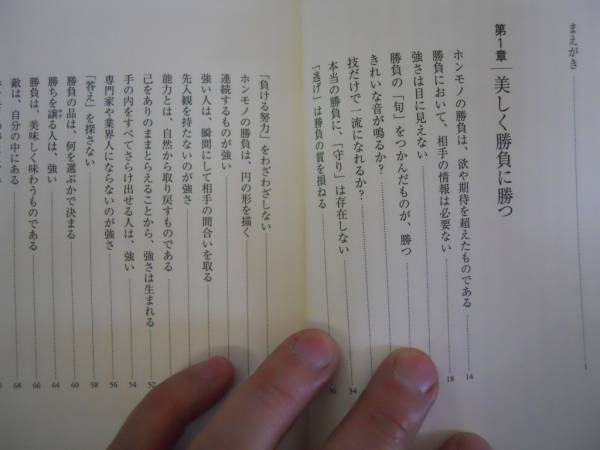 まえがき 1
第1章 美しく勝負に勝つ
ホンモノの勝負は、欲や期待を超えたものである 14
勝負において、相手の情報は必要ない 18
強さは目に見えない
勝負の「旬」をつかんだものが、勝つ
きれいな音が鳴るか?
技だけで一流になれるか?
本当の勝負に、「守り」は存在しない 34
「逃げ」は勝負の質を損ねる 36
「負ける努力」をわざわざしない
ホンモノの勝負は、円の形を描く
連続するものが強い
強い人は、瞬間にして相手の間合いを取る
先入観を持たないのが強さ
能力とは、自然から取り戻すものである
己をありのままとらえることから、強さは生まれる 52
手の内をすべてさらけ出せる人は、強い 54
専門家や業界人にならないのが強さ 56
「答え」を探さない 58
勝負の品は、何を選ぶかで決まる 60
勝ちを譲る人は、強い 64
勝負は、美味しく味わうものである 66
敵は、自分の中にある 68